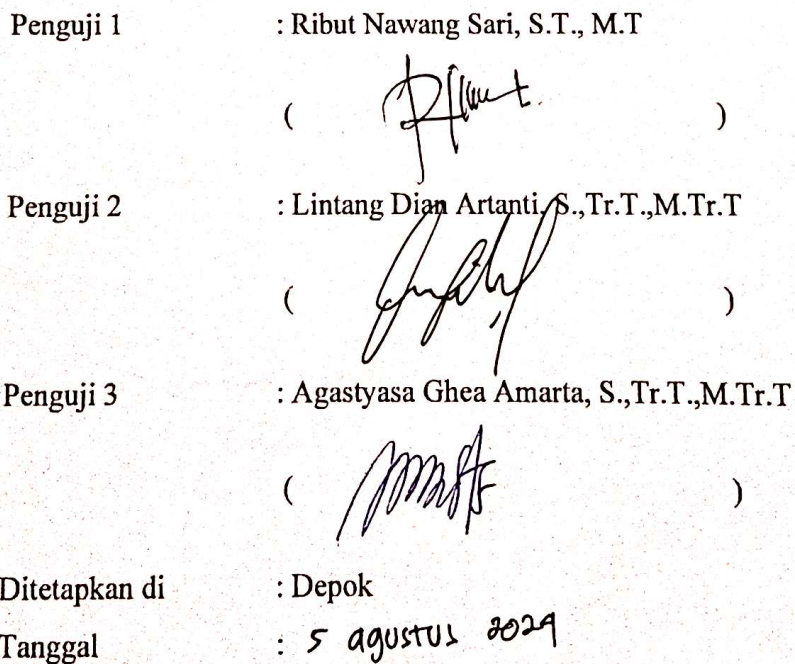 Penguji 1 : Ribut Nawang Sari, S.T., M.T
( )
Penguji 2 : Lintang Dian Artanti, S.,Tr.T.,M.Tr.T
( )
Penguji 3 : Agastyasa Ghea Amarta, S.,Tr.T.,M.Tr.T
( )
Ditetapkan di : Depok
Tanggal : 5 agustus 2024